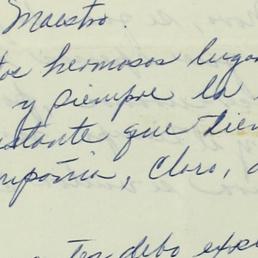 Maestro.
tos hermosos lugar
y siempre la
stante que tien
mpoñia, Claro, a
debo expr